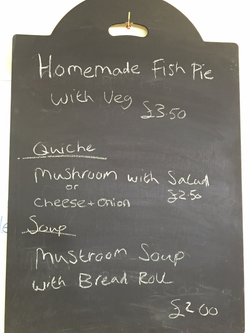 Homemade Fish Pie
with Veg
£3.50
Qwiche
Mushroom with Salad
or
£2.50
Cheese + Onion
Soup
Mustroom Soup
with Bread Roll
£2.00